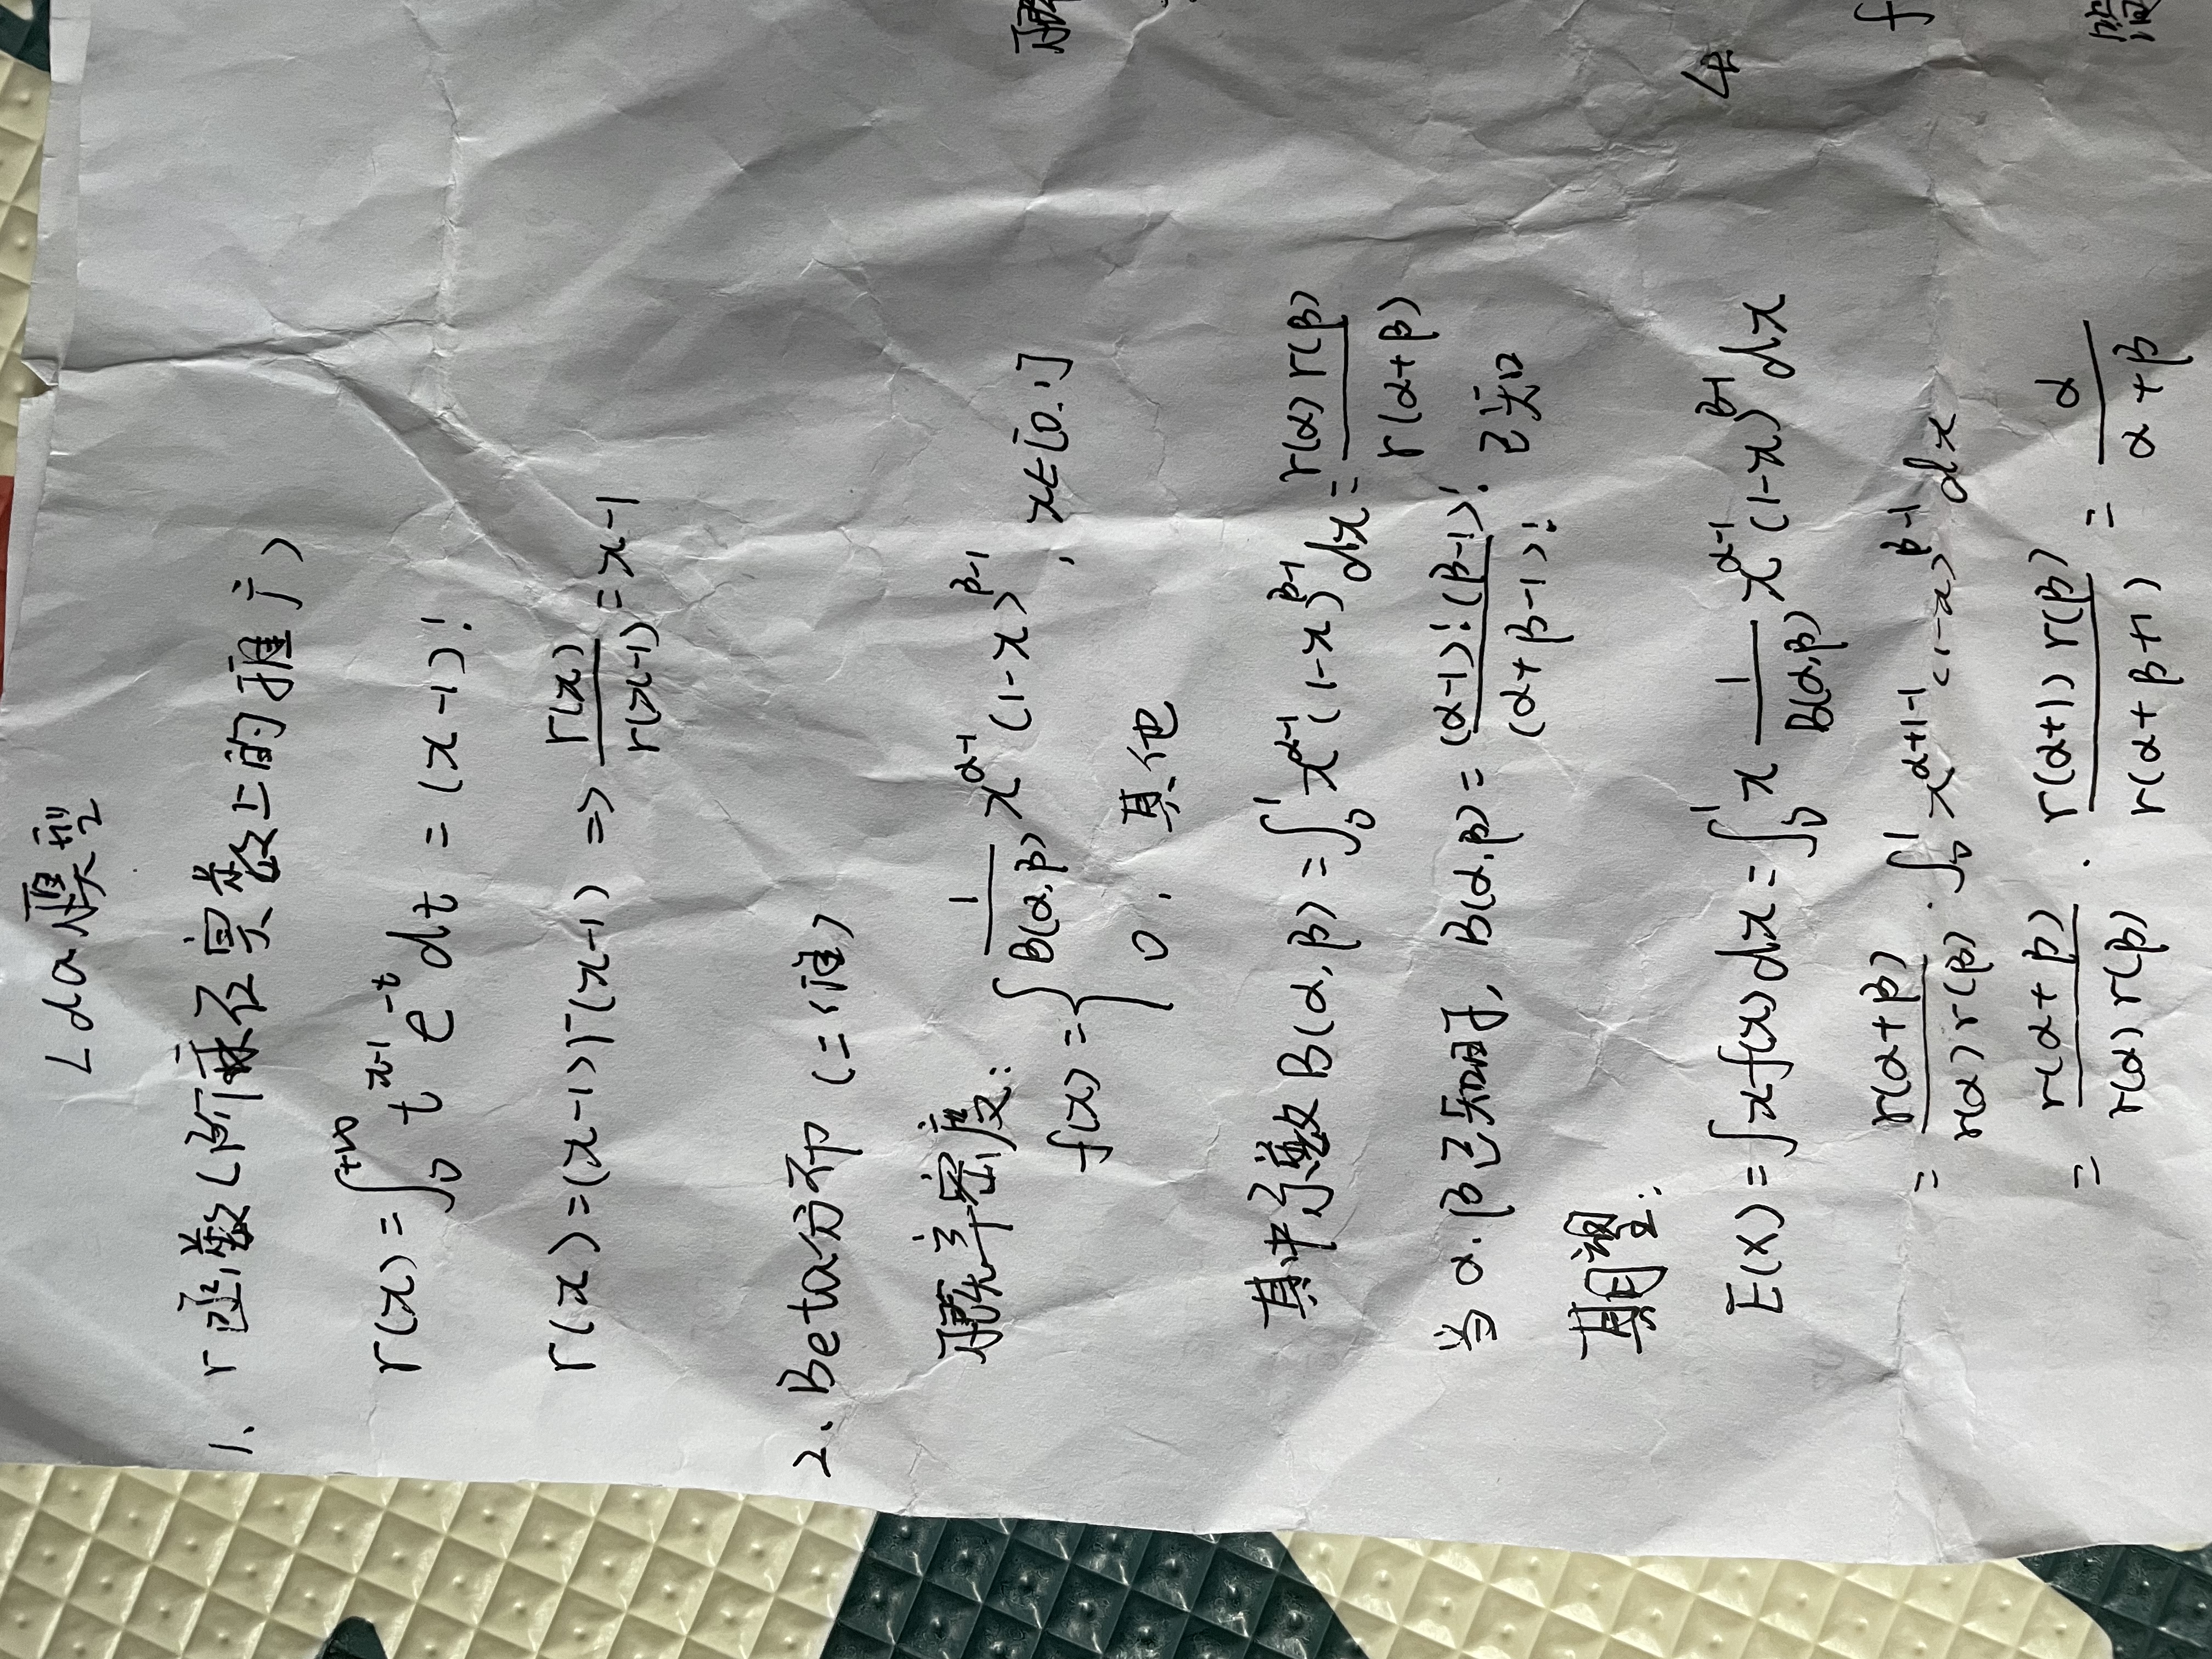 Lda模型
1、Γ函数(阶乘在实数上的推广)
Γ(x) = ∫₀^{+∞} t^{x-1} e^{-t} dt = (x-1)!
Γ(x) = (x-1)Γ(x-1) => Γ(x)/Γ(x-1) = x-1
2、Beta分布 (二维)
概率密度:
f(x) = { 1/B(α,β) x^{α-1} (1-x)^{β-1}, x∈[0,1]
0, 其他
其中系数 B(α,β) = ∫₀^1 x^{α-1} (1-x)^{β-1} dx = Γ(α)Γ(β)/Γ(α+β)
当α,β已知时, B(α,β) = (α-1)!(β-1)!/(α+β-1)! 已知
期望:
E(X) = ∫xf(x)dx = ∫₀^1 x 1/B(α,β) x^{α-1} (1-x)^{β-1} dx
= Γ(α+β)/Γ(α)Γ(β) · ∫₀^1 x^{α+1-1} (1-x)^{β-1} dx
= Γ(α+β)/Γ(α)Γ(β) · Γ(α+1)Γ(β)/Γ(α+β+1) = α/(α+β)
f